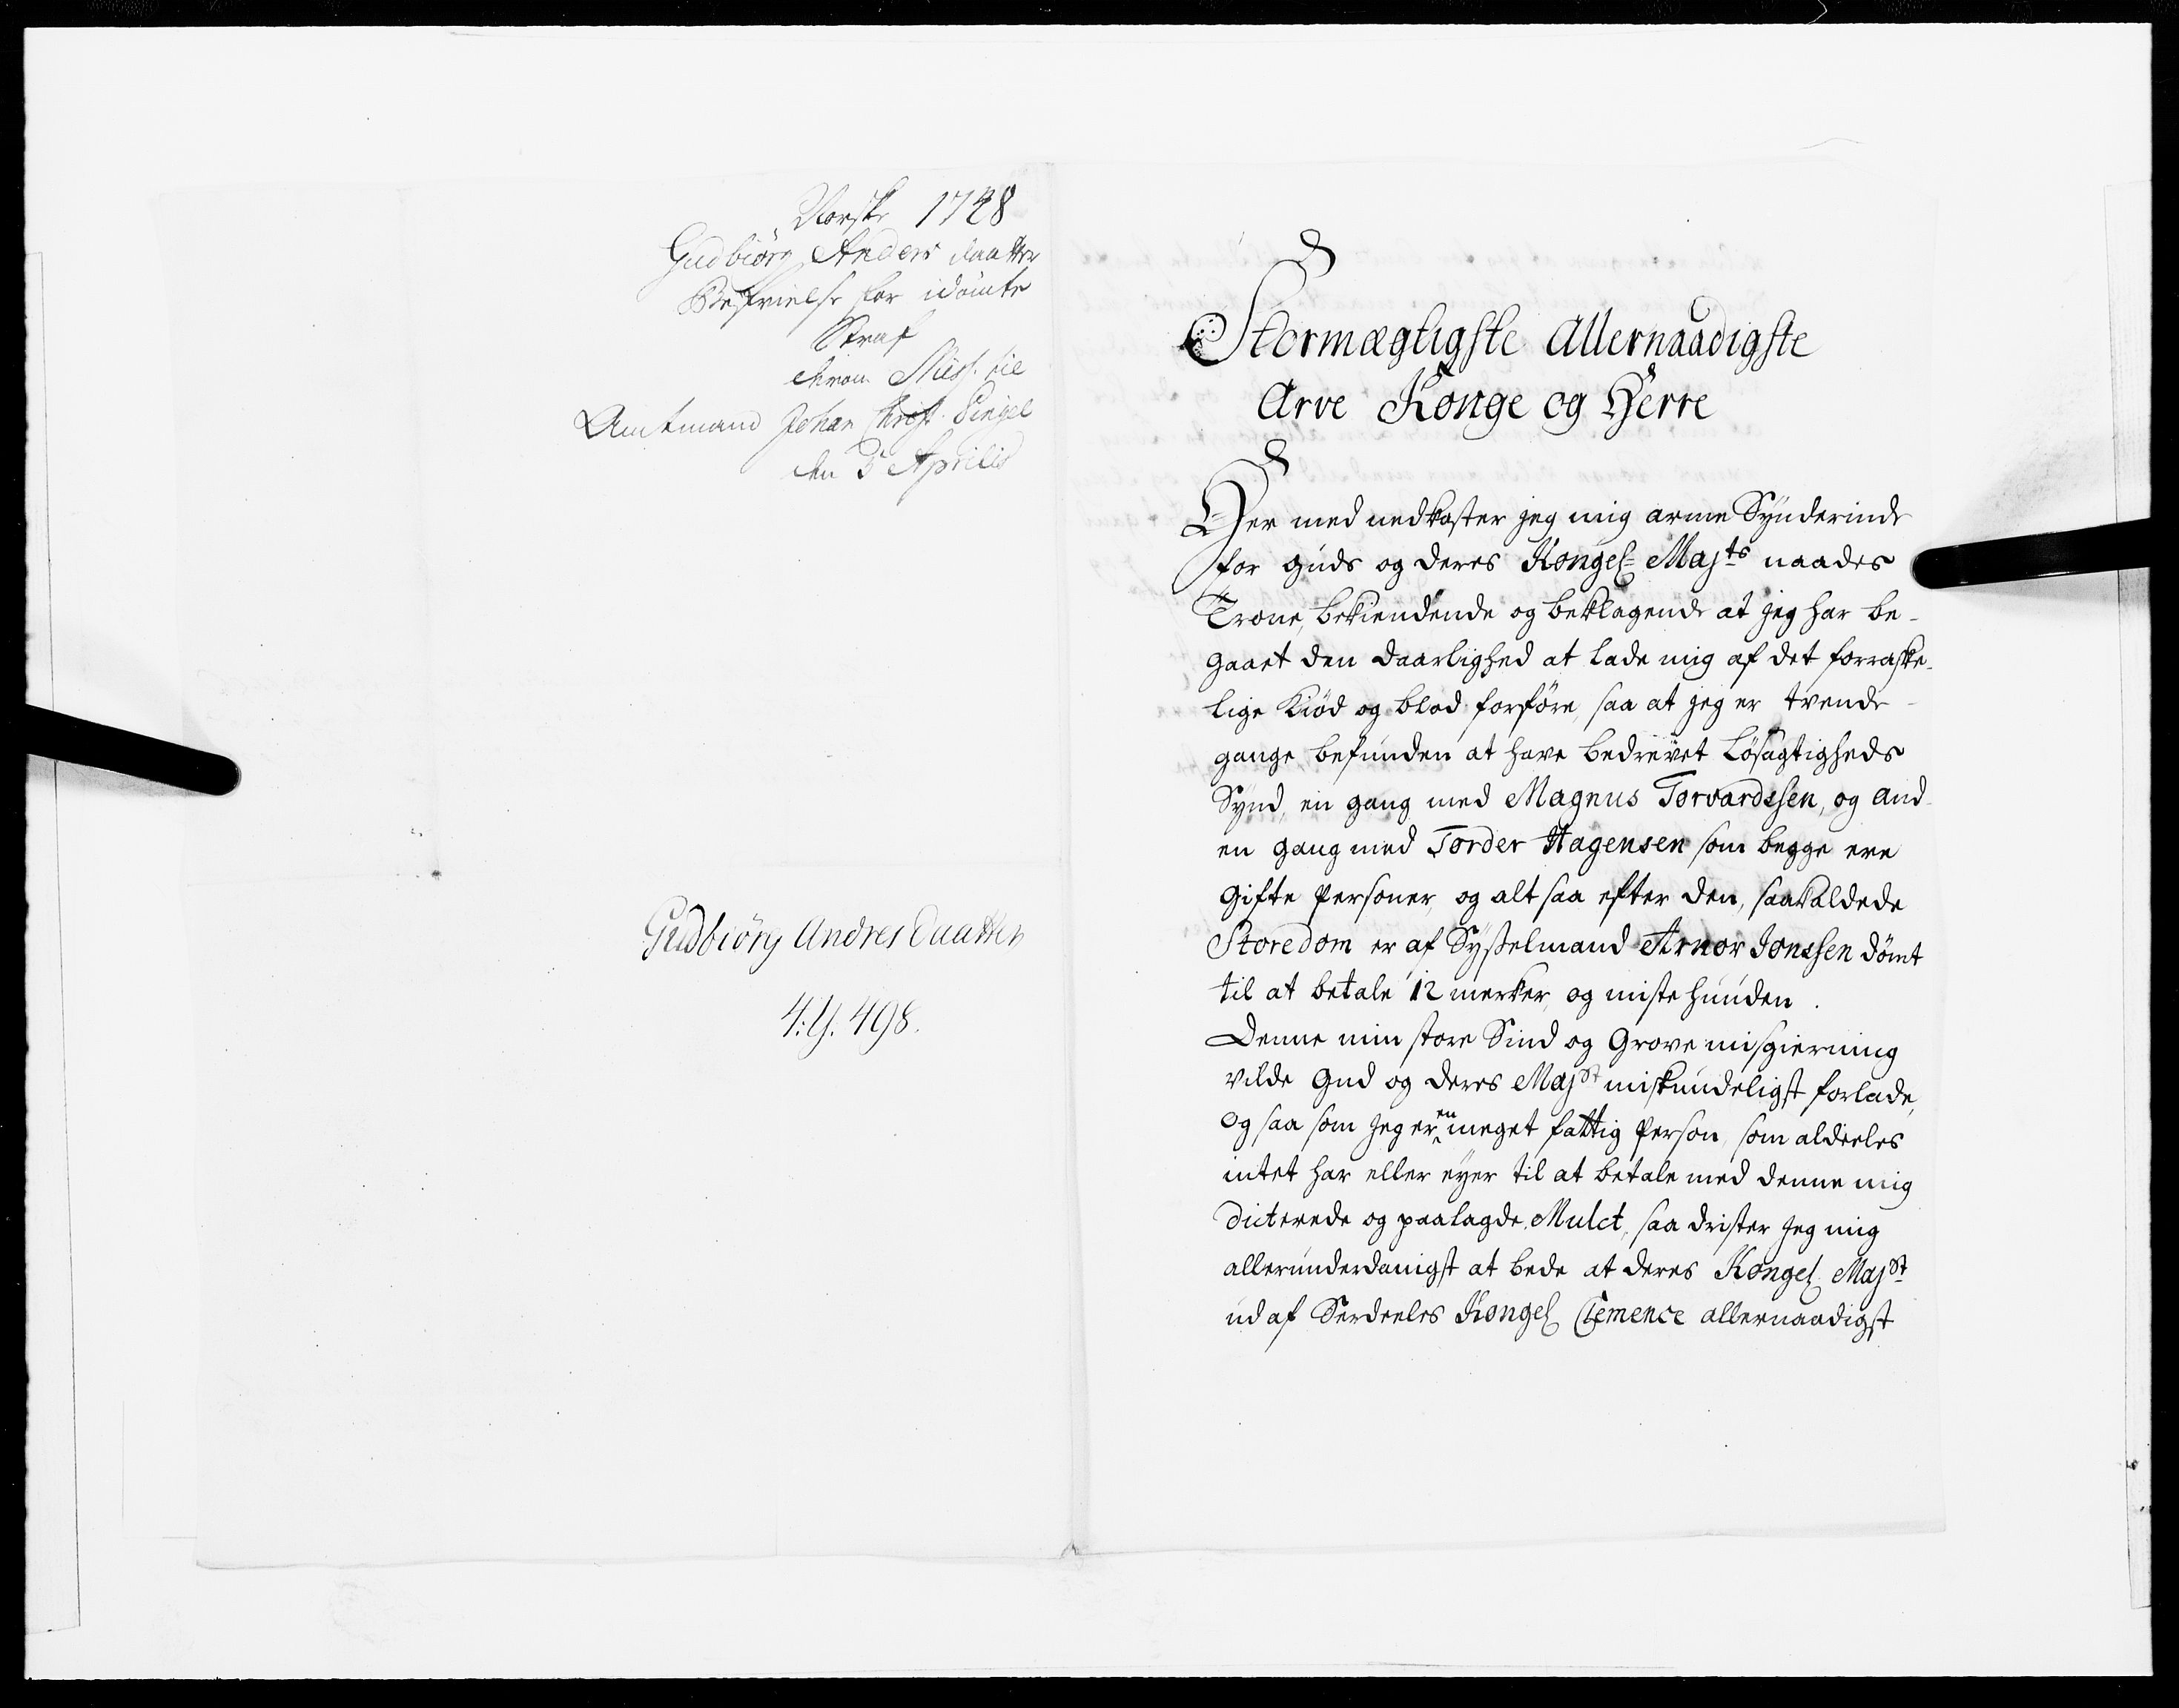 Norske 1748
Gudbiörg Anders daatter
Befrielse for idömte
Straf
Miss. til
Amtmand Johan Christ. Pingel
den 3 Aprilis
Gudbiörg Andres daatter
4: 498.
Stormægtigste Allernaadigste
Arve Konge og Herre
Her med nedkaster jeg mig arme Synderinde
for Guds og deres Kongel= Majts naades
Trone, bekiendende og beklagende at jeg har be-
gaaet den daarlighed at lade mig af det forraske-
lige Kiød og blod forføre, saa at jeg er trende
gange befunden at have bedrevet Løsagtigheds
Synd, en gang med Magnus Torvardssen, og and
en gang med Torder Hagensen som begge ere
gifte Personer, og alt saa efter den, saakaldede
Storedom er af Sysselmand Arnor Jonssen dömt
til at betale 12 merker, og miste huuden.
Denne min store Sind og Grove misgierning
vilde Gud og deres Majst miskundeligst forlade,
og saa som jeg er en meget fattig Person, som aldeeles
intet har eller eyer til at betale med denne mig
dicterede og paalagde Mulct, saa drister jeg mig
allerunderdanigst at bede at deres Kongel Majst
ud af Serdeeles Kongel Clemence allernaadigst